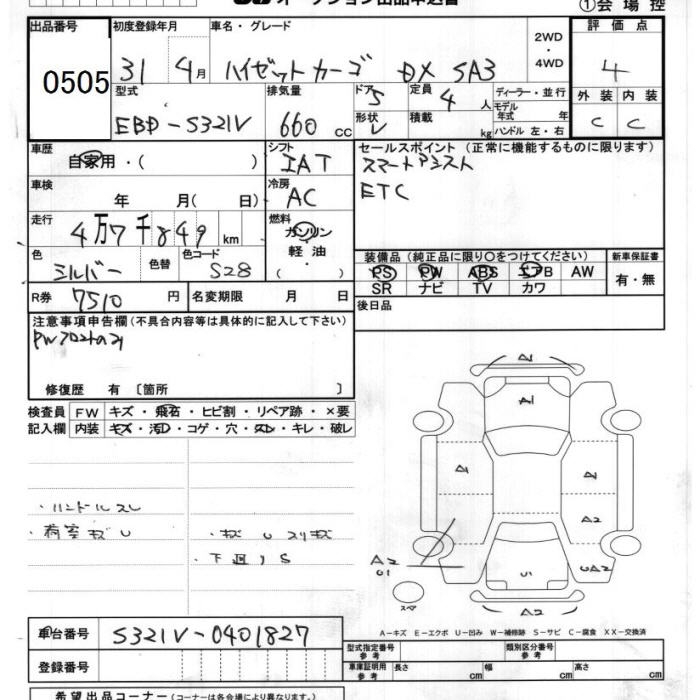 オークション出品申込書
①会場控
出品番号
0505
初度登録年月
31 4月
車名・グレード
ハイゼットカーゴ DX SA3
2WD
・
4WD
評価点
4
型式
EBD-S321V
排気量
660 cc
ドア 5
形状 V
定員 4 人
積載 kg
ディーラー・並行
モデル年式 年
ハンドル 左・右
外装 内装
C C
車歴
自家用・( )
シフト
IAT
セールスポイント (正常に機能するものに限ります)
スマートアシスト
ETC
車検
年 月( 日)
冷房
AC
走行
4万7千849 km
燃料
ガソリン
・
軽油
・
( )
色
シルバー
色替
色コード
S28
装備品 (純正品に限り○をつけてください)
PS PW ABS エアB AW
SR ナビ TV カワ
新車保証書
有・無
R券 7510 円
名変期限 月 日
後日品
注意事項申告欄(不具合内容等は具体的に記入して下さい)
PWフロントのみ
修復歴 有 〔箇所 〕
検査員 FW キズ・飛石・ヒビ割・リペア跡・×要
記入欄 内装 キズ・汚レ・コゲ・穴・スレ・キレ・破レ
・ハンドルスレ
・荷室キズU
・キズ U スリキズ
・下廻リS
A1
A1
A1
A1
A2
A2
U1
UA2
S
A2
スペア
A-キズ E-エクボ U-凹み W-補修跡 S-サビ C-腐食 XX-交換済
車台番号 S321V-0401827
登録番号
型式指定番号 参考
類別区分番号 参考
車庫証明用 参考
長さ cm
幅 cm
高さ cm
希望出品コーナー(コーナーは各会場により異なります。)